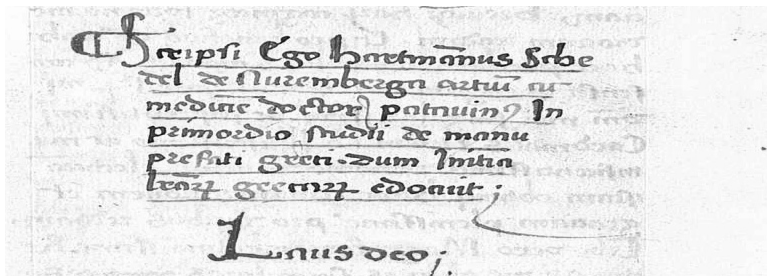 Scripsi Ego hartmānus Sche
del de Nuremberga artiū cū
medicīe doctor patavinꝰ In
primordio studii de manu
prefati greci. dum Initia
lr̄aꝝ grecaꝝ edocuit ;
Laus deo ;